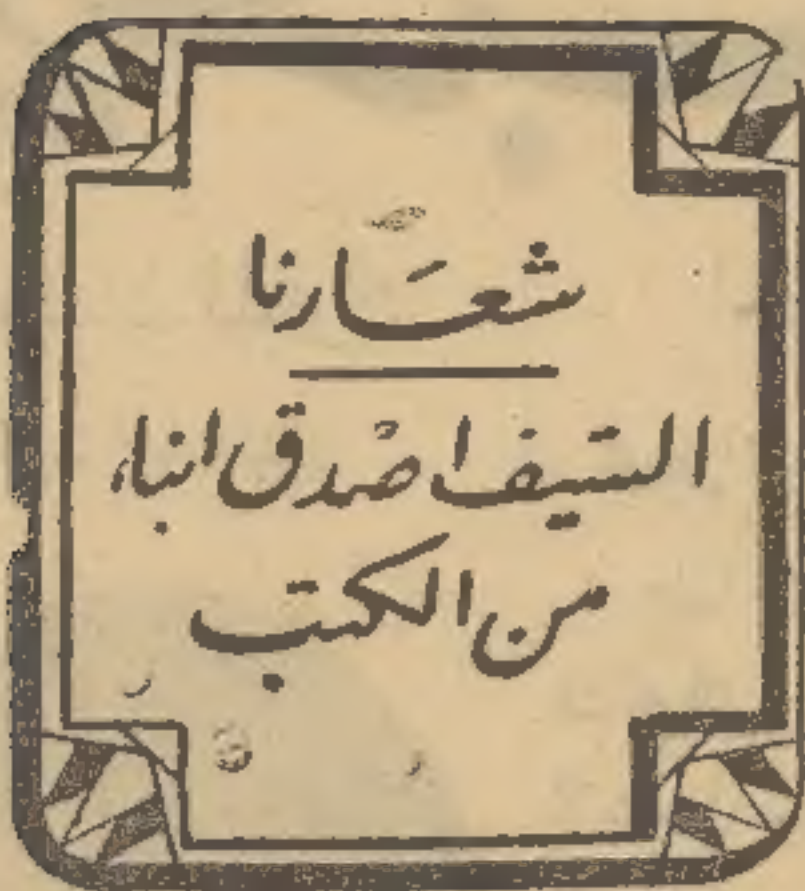 شعَارنا
السّيف اصْدق انباء
من الكتب